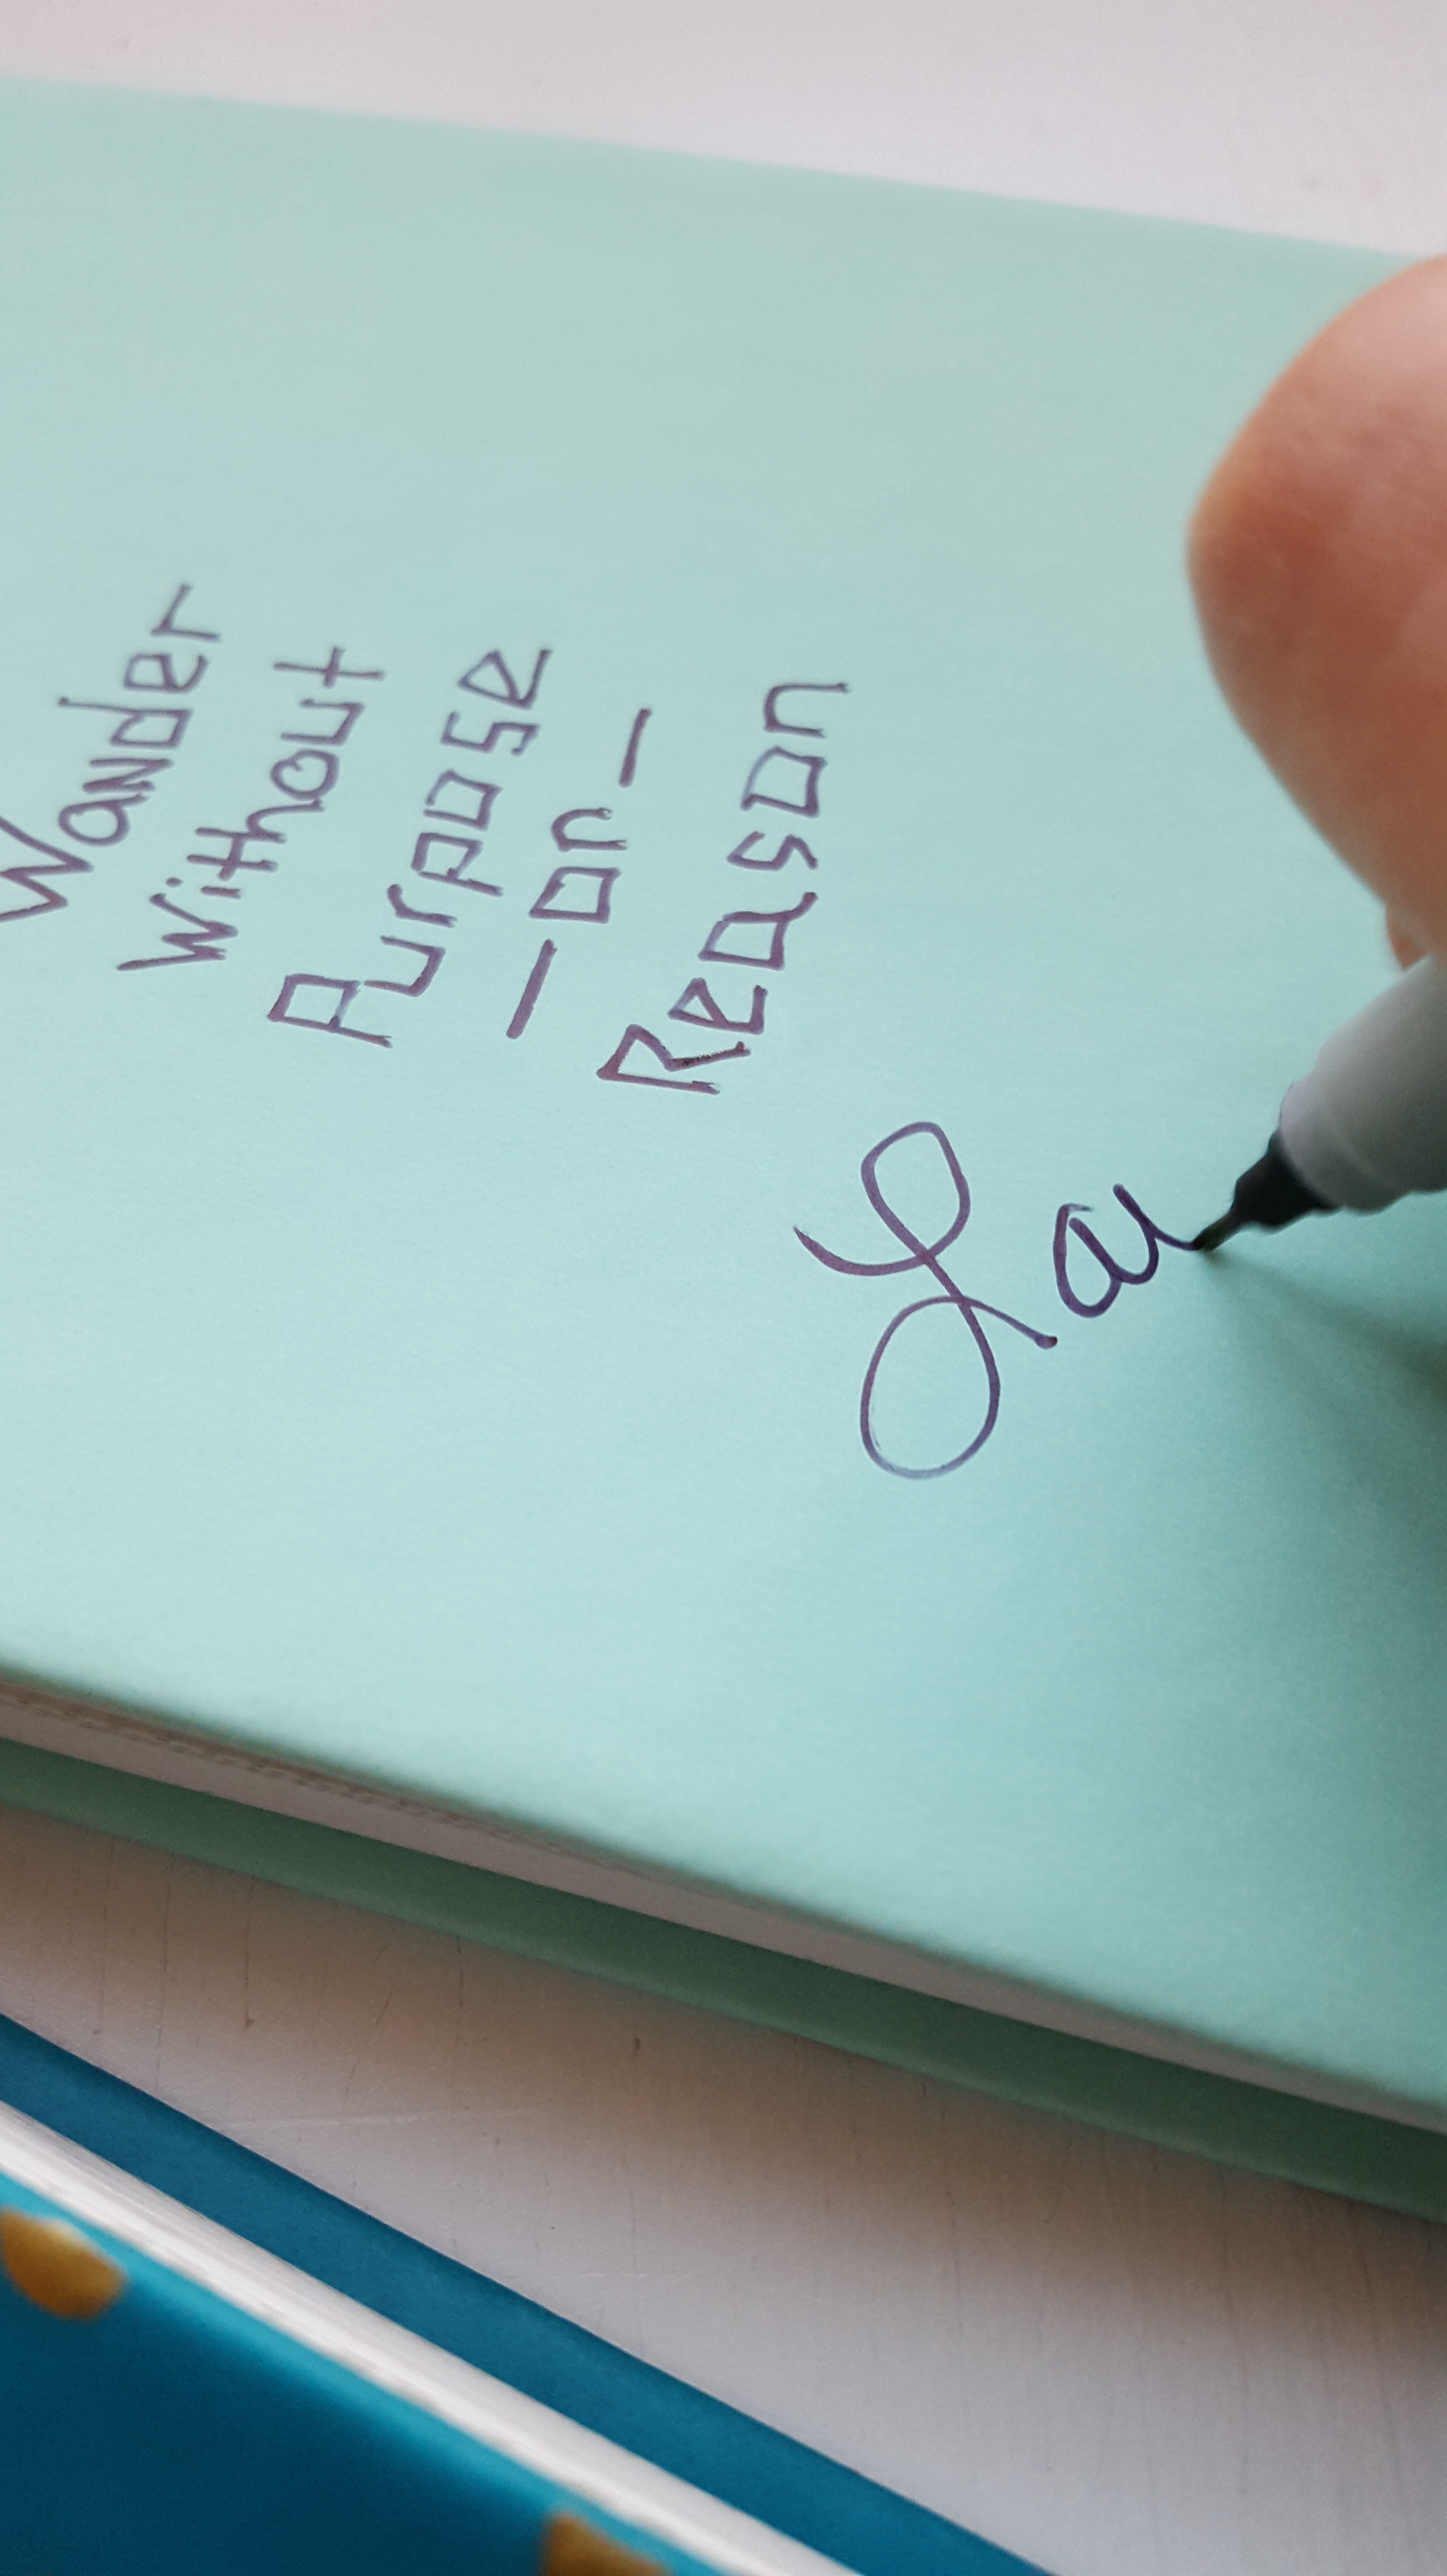 Wander
Without
Purpose
- on -
Reason
La